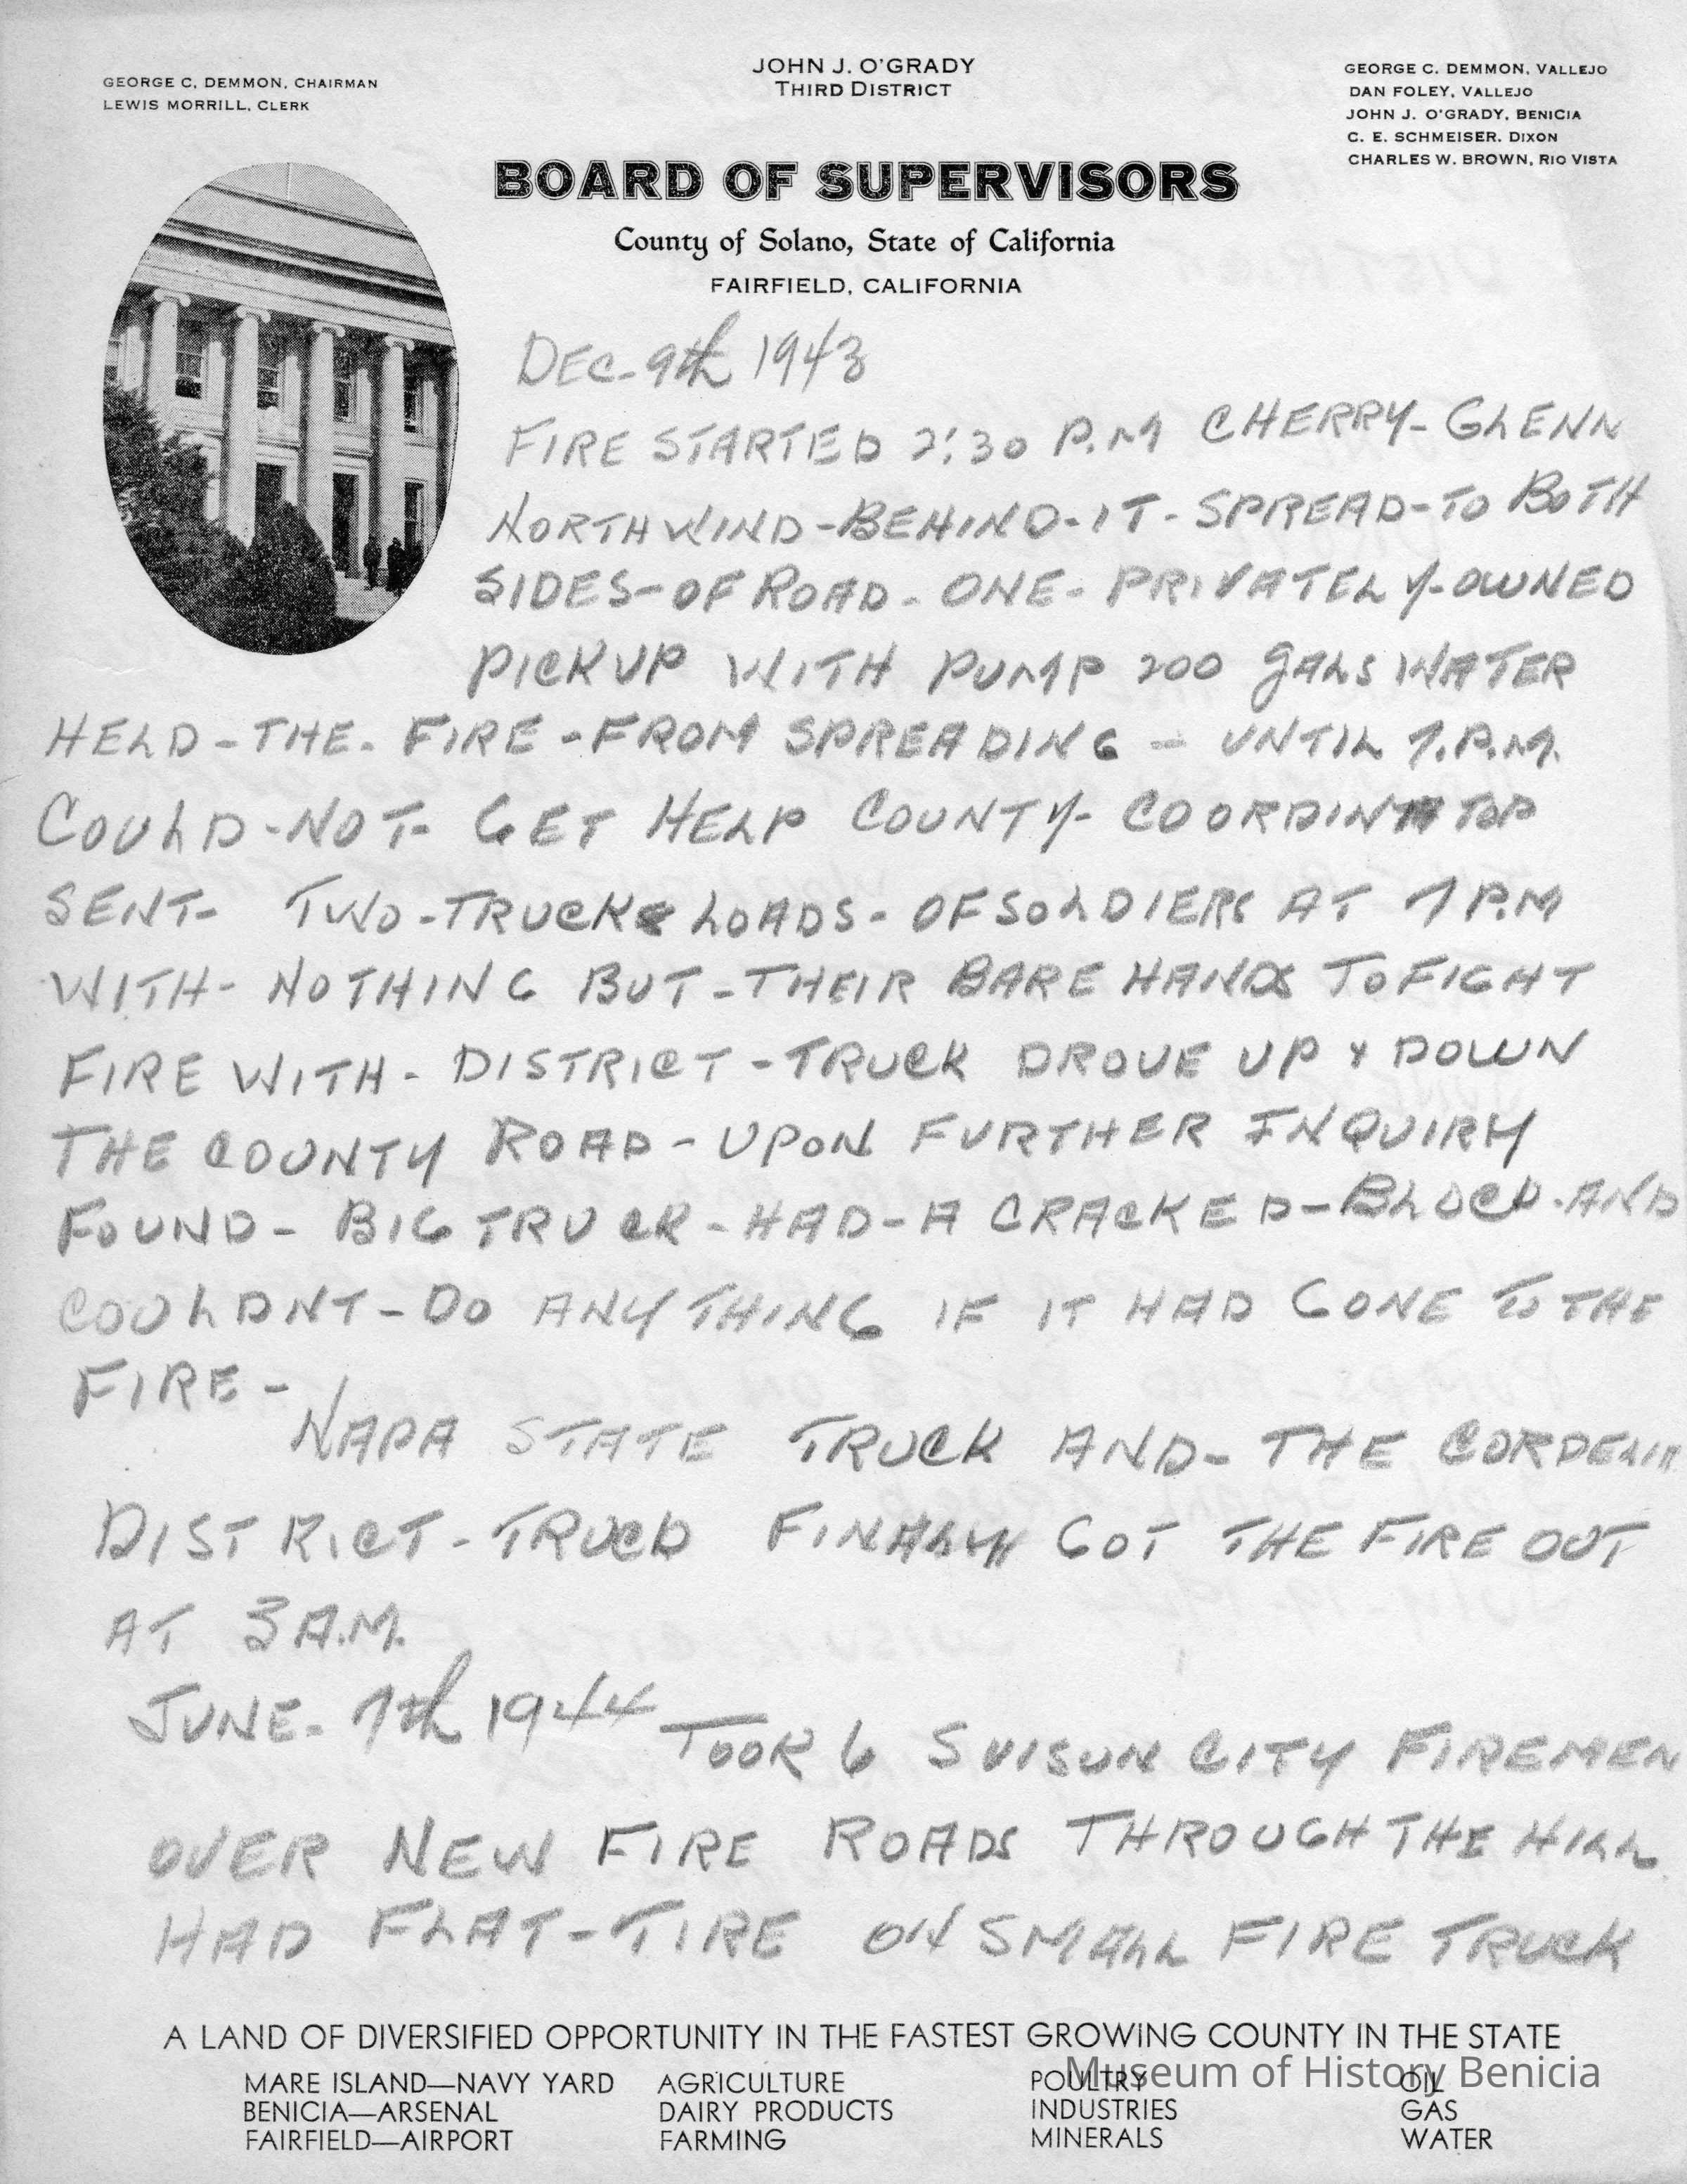 GEORGE C. DEMMON, CHAIRMAN
LEWIS MORRILL, CLERK
JOHN J. O'GRADY
THIRD DISTRICT
GEORGE C. DEMMON, VALLEJO
DAN FOLEY, VALLEJO
JOHN J. O'GRADY, BENICIA
C. E. SCHMEISER, DIXON
CHARLES W. BROWN, RIO VISTA
BOARD OF SUPERVISORS
County of Solano, State of California
FAIRFIELD, CALIFORNIA
DEC. 9th 1943
FIRE STARTED 2:30 P.M CHERRY-GLENN
NORTH WIND-BEHIND-IT-SPREAD-TO BOTH
SIDES-OF ROAD. ONE. PRIVATELY-OWNED
PICKUP WITH PUMP 200 GALS WATER
HELD-THE. FIRE-FROM SPREADING - UNTIL 7.P.M.
COULD-NOT- GET HELP COUNTY- COORDINATOR
SENT- TWO-TRUCK LOADS- OF SOLDIERS AT 7 P.M
WITH- NOTHING BUT-THEIR BARE HANDS TO FIGHT
FIRE WITH- DISTRICT-TRUCK DROVE UP & DOWN
THE COUNTY ROAD-UPON FURTHER INQUIRY
FOUND- BIG TRUCK-HAD-A CRACKED-BLOCK.AND
COULDNT-DO ANYTHING IF IT HAD GONE TO THE
FIRE-
NAPA STATE TRUCK AND- THE
DISTRICT-TRUCK FINALLY GOT THE FIRE OUT
AT 3 A.M.
JUNE. 7th 1944 TOOK 6 SUISUN CITY FIREMEN
OVER NEW FIRE ROADS THROUGH THE HILL
HAD FLAT-TIRE ON SMALL FIRE TRUCK
A LAND OF DIVERSIFIED OPPORTUNITY IN THE FASTEST GROWING COUNTY IN THE STATE
MARE ISLAND—NAVY YARD AGRICULTURE POULTRY OIL
BENICIA—ARSENAL DAIRY PRODUCTS INDUSTRIES GAS
FAIRFIELD—AIRPORT FARMING MINERALS WATER
Museum of History Benicia